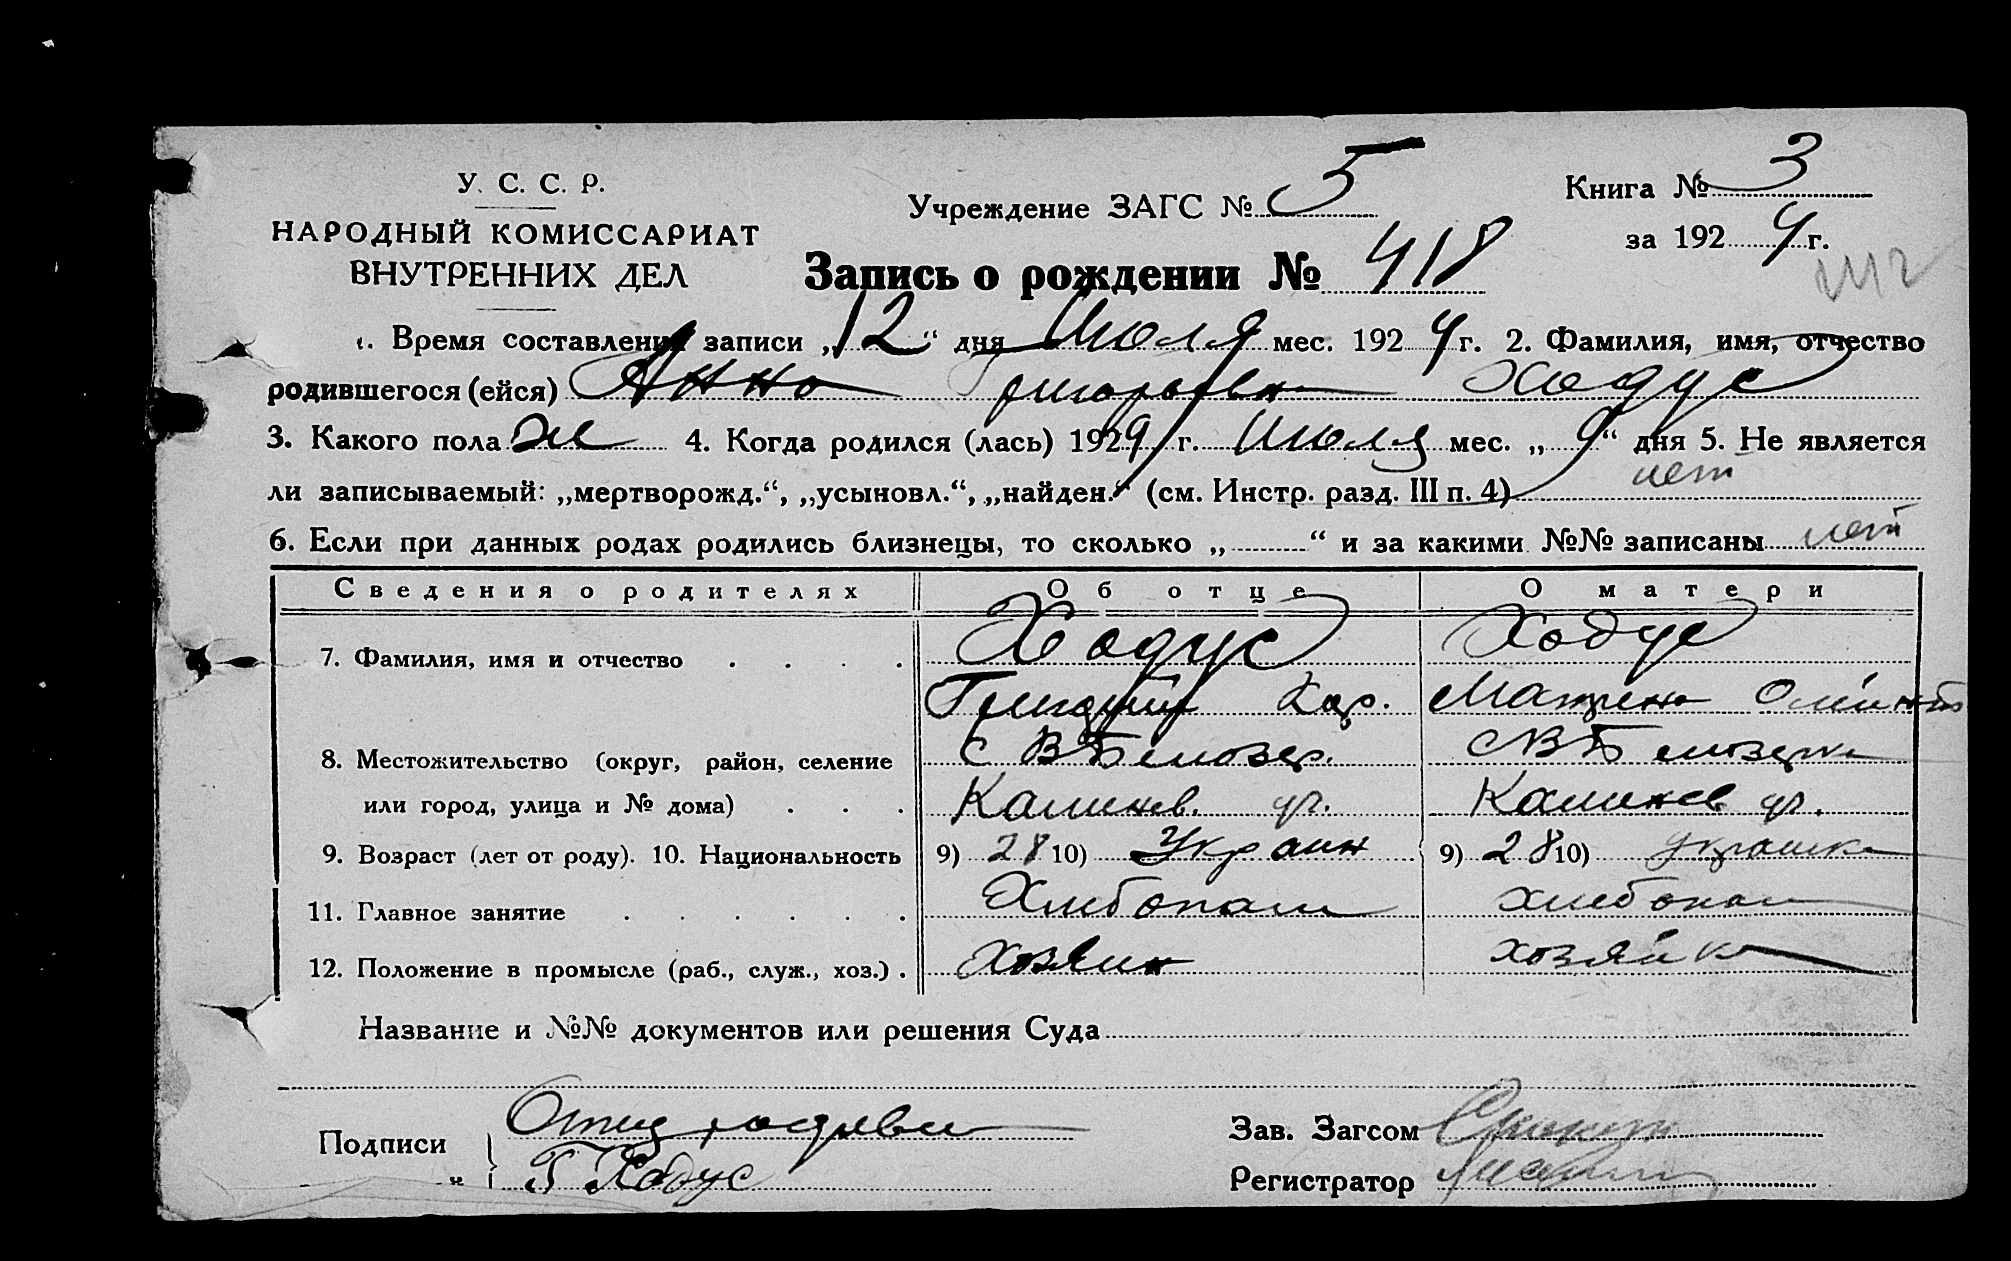 У. С. С. Р.
НАРОДНЫЙ КОМИССАРИАТ
ВНУТРЕННИХ ДЕЛ
Учреждение ЗАГС № 5
Книга № 3
за 1924 г.
Запись о рождении № 418
1. Время составления записи „12“ дня Июля мес. 1924 г. 2. Фамилия, имя, отчество
родившегося (ейся) Анна Григорьевна Ходус
3. Какого пола ж 4. Когда родился (лась) 1924 г. Июля мес. „9“ дня 5. Не является
ли записываемый: „мертворожд.“, „усыновл.“, „найден.“ (см. Инстр. разд. III п. 4) нет
6. Если при данных родах родились близнецы, то сколько „ “ и за какими №№ записаны нет
Сведения о родителях Об отце О матери
7. Фамилия, имя и отчество Ходус Ходус
Григорий Кар. Матрена
8. Местожительство (округ, район, селение с В Белозер. с В Белозерка
или город, улица и № дома) Калинев. ул. Калинев ул.
9. Возраст (лет от роду). 10. Национальность 9) 28 10) Украин 9) 28 10) Украинка
11. Главное занятие Хлебопаш хлебопаш
12. Положение в промысле (раб., служ., хоз.) хозяин хозяйка
Название и №№ документов или решения Суда
Подписи Отец
Г Ходус
Зав. Загсом
Регистратор